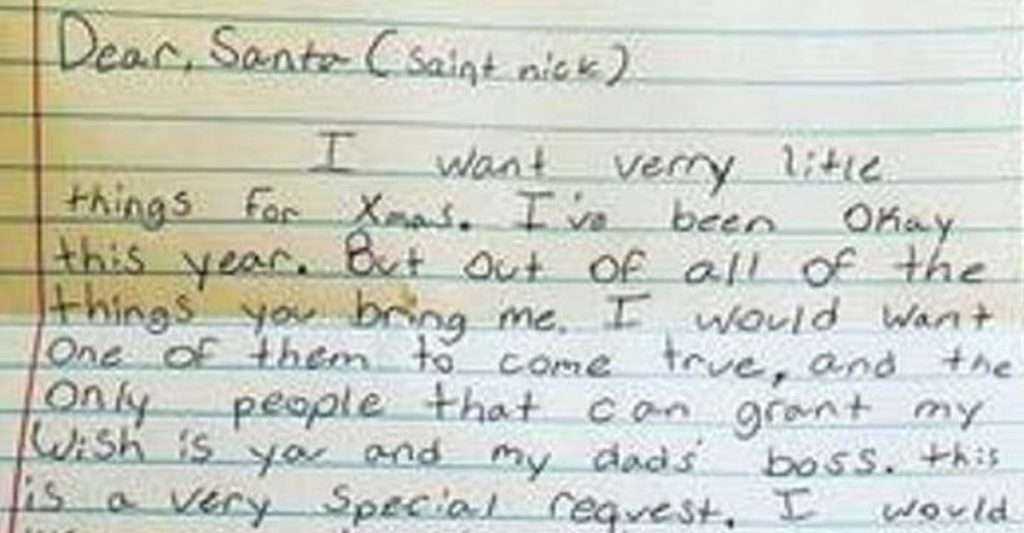 Dear, Santa (Saint nick)
I want verry litle
things for Xmas. I've been Okay
this year. But out of all of the
things you bring me. I would want
One of them to come true, and the
Only people that can grant my
Wish is you and my dads' boss. this
is a very special request. I would